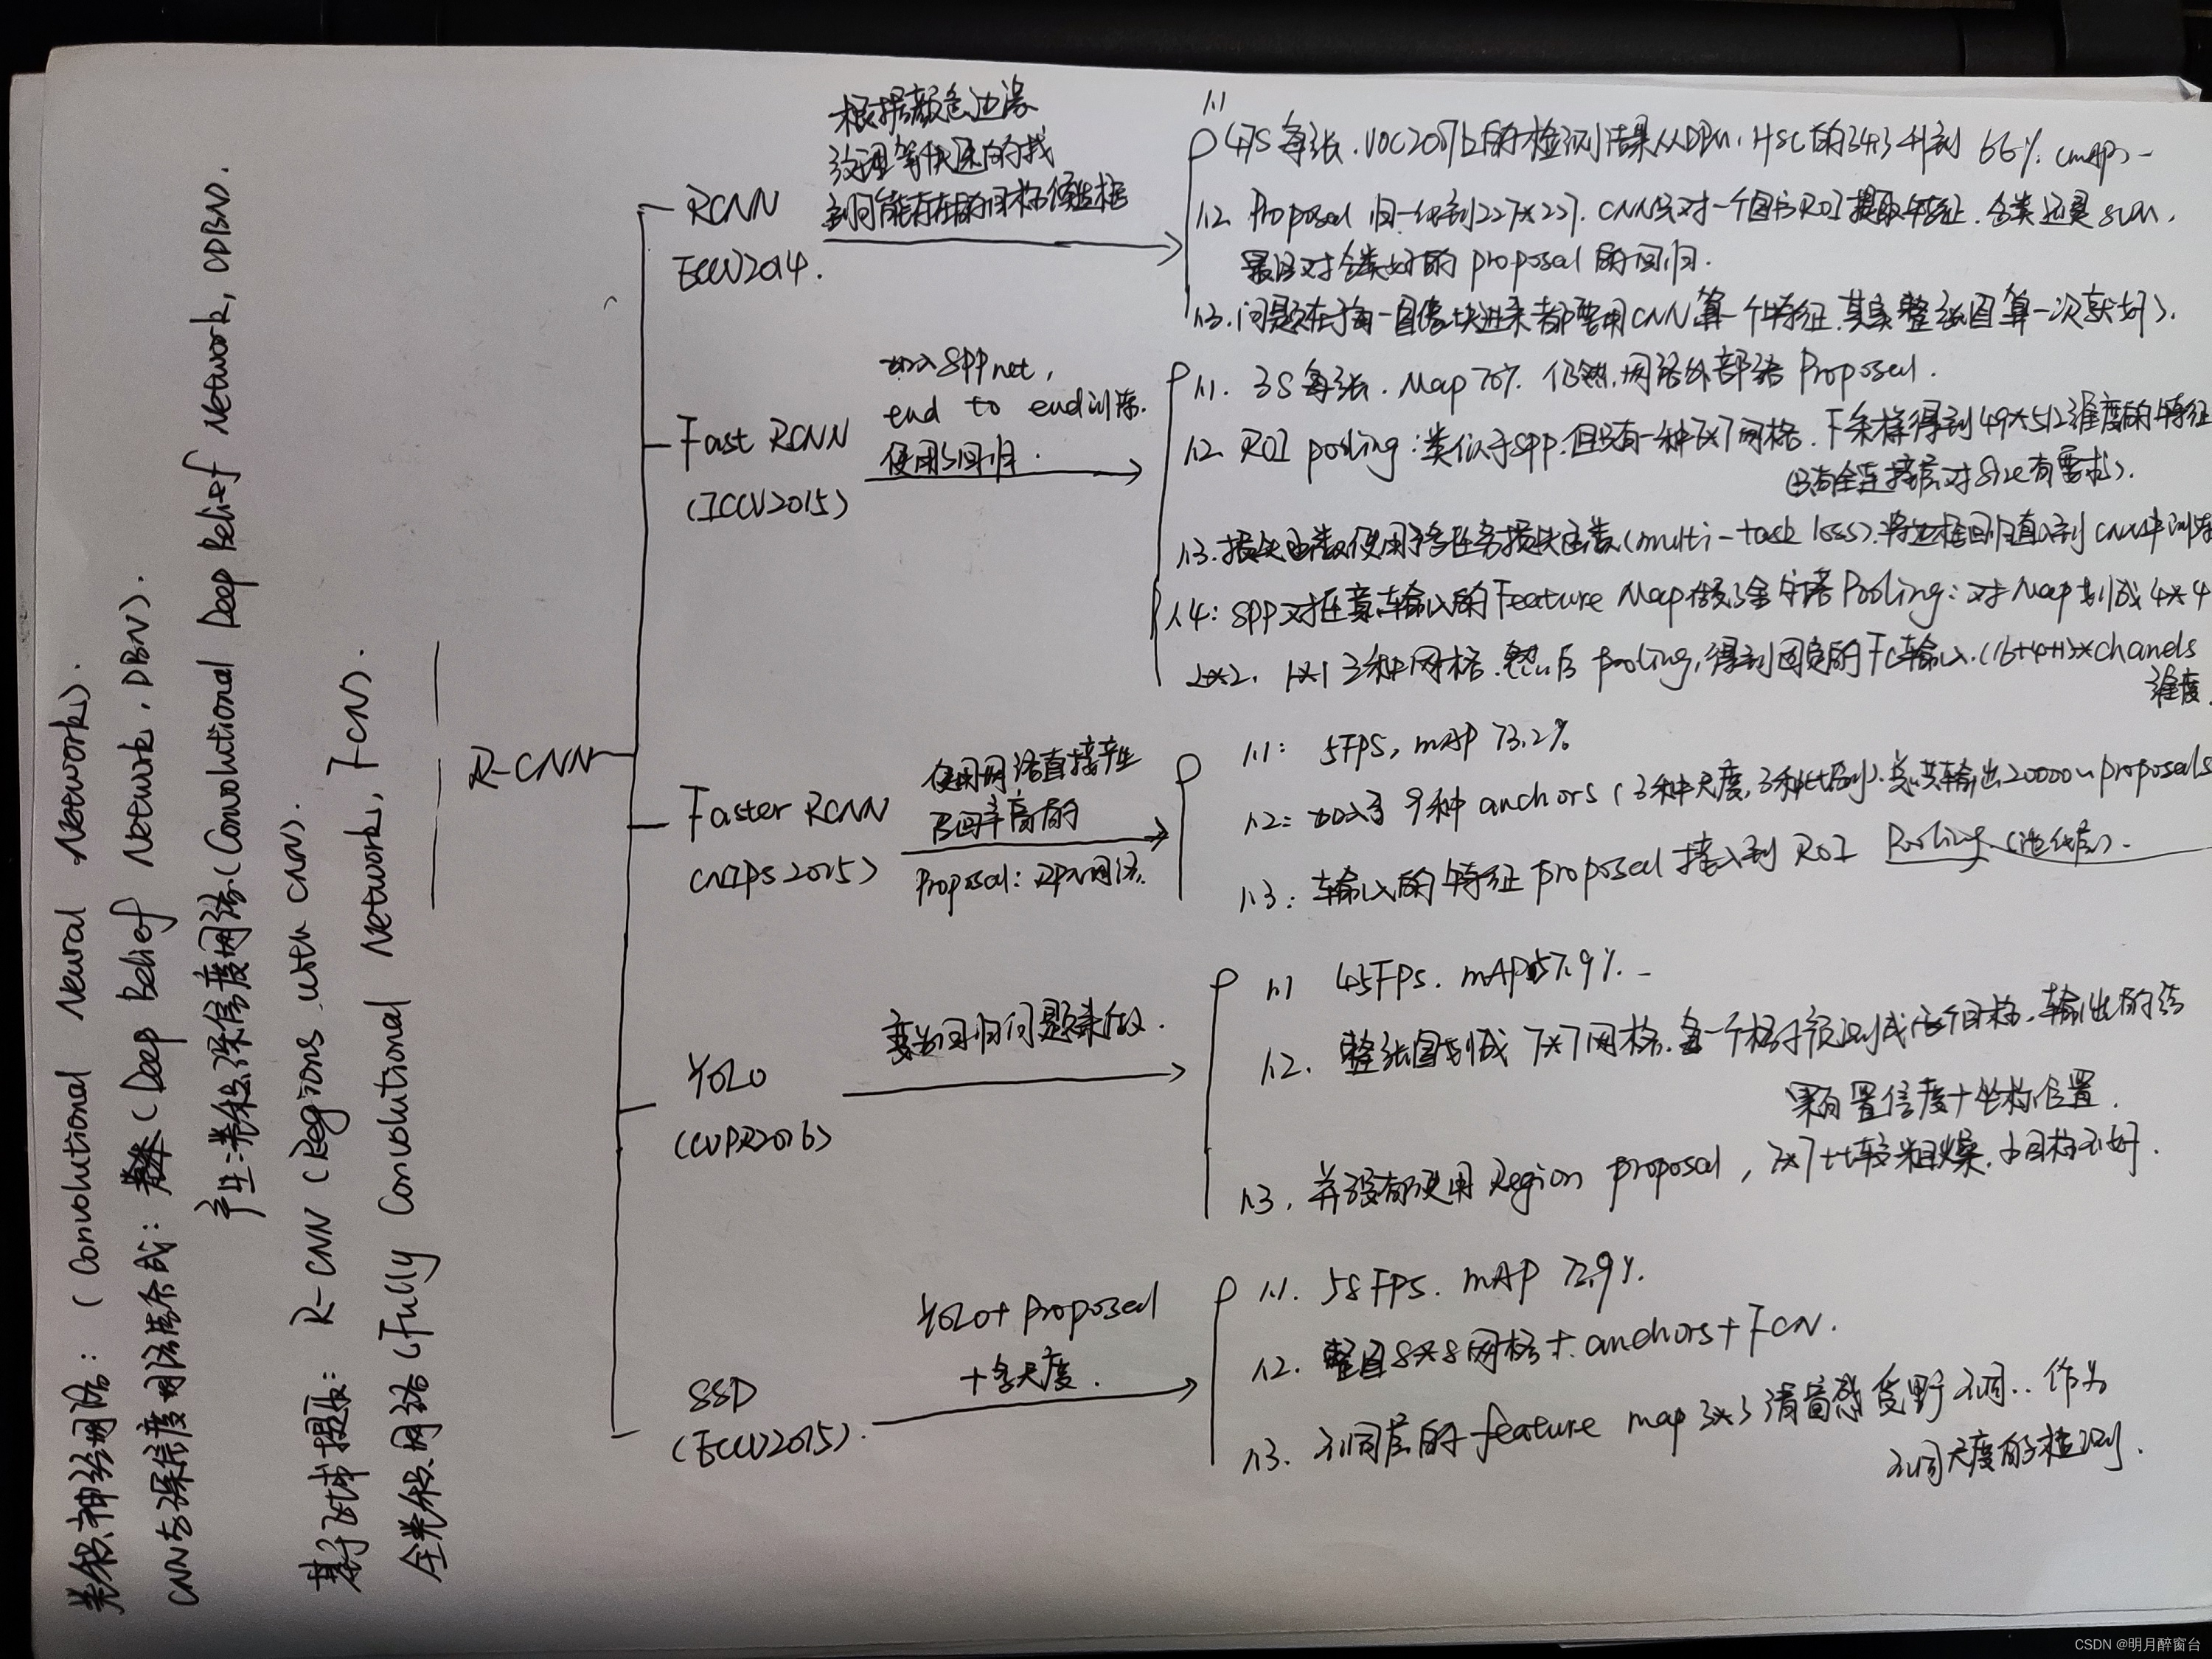 卷积神经网络：（Convolutional Neural Networks）.
CNN与深信度网络集成：（Deep Belief Network, DBN）.
产生：卷积深信度网络（Convolutional Deep Belief Network, CDBN）.
基于 R-CNN（Regions with CNN）.
全卷积网络（Fully Convolutional Network, FCN）.
R-CNN
RCNN
ECCV2014.
根据颜色边缘
纹理等快速的找
到可能存在的目标候选框
1.1 47S每张. VOC2007上的检测结果从DPM, HSC的34.3升到 66%.（mAP）
1.2 Proposal 归一化到227*227. CNN只对一个图书ROI提取特征. 分类还是SVM.
最后对分类好的 proposal 的回归.
1.3. 问题在于每一图像块进来都要用CNN算一个特征. 其实整张图算一次就好）.
Fast RCNN
（ICCV2015）
加入SPPnet,
end to end训练.
使用回归.
1.1. 3S每张. Map 70%. 仍然网络外部 Proposal.
1.2 ROI pooling：类似于SPP. 但只有一种7*7网格. 下采样得到49*512维度的特征
（只有全连接层对Size有要求）.
1.3. 损失函数使用多任务损失函数（multi-task loss）. 将边框回归直入到CNN中训练
1.4：SPP对任意输入的Feature Map做金字塔Pooling：对Map划成4*4
2*2. 1*1 3种网格. 然后 pooling, 得到固定的Fc输入.（16+4+1）*chanels
维度.
Faster RCNN
（NIPS 2015）
使用网络直接产生
召回率高的
Proposal：RPN网络.
1.1： 5FPS, mAP 73.2%
1.2：加入了 9种 anchors（3种尺度, 3种比例）. 总共输出20000 proposals
1.3：输入的特征 proposal 接入到 ROI Pooling.（池化层）.
YOLO
（CVPR2016）
变为回归问题来做.
1.1 45FPS. mAP 57.9%.
1.2. 整张图划成 7*7网格. 每一个格子预测 目标. 输出的结
果有置信度+坐标位置.
1.3. 并没有使用 Region proposal, 7*7比较粗燥. 小目标不好.
SSD
（ECCV2015）.
YOLO+ Proposal
+多尺度.
1.1. 58FPS. mAP 72.9%.
1.2. 整图8*8网格+ anchors+FCN.
1.3. 不同层的 feature map 3*3 感受野不同.. 作为
不同尺度的检测.
CSDN @明月醉窗台